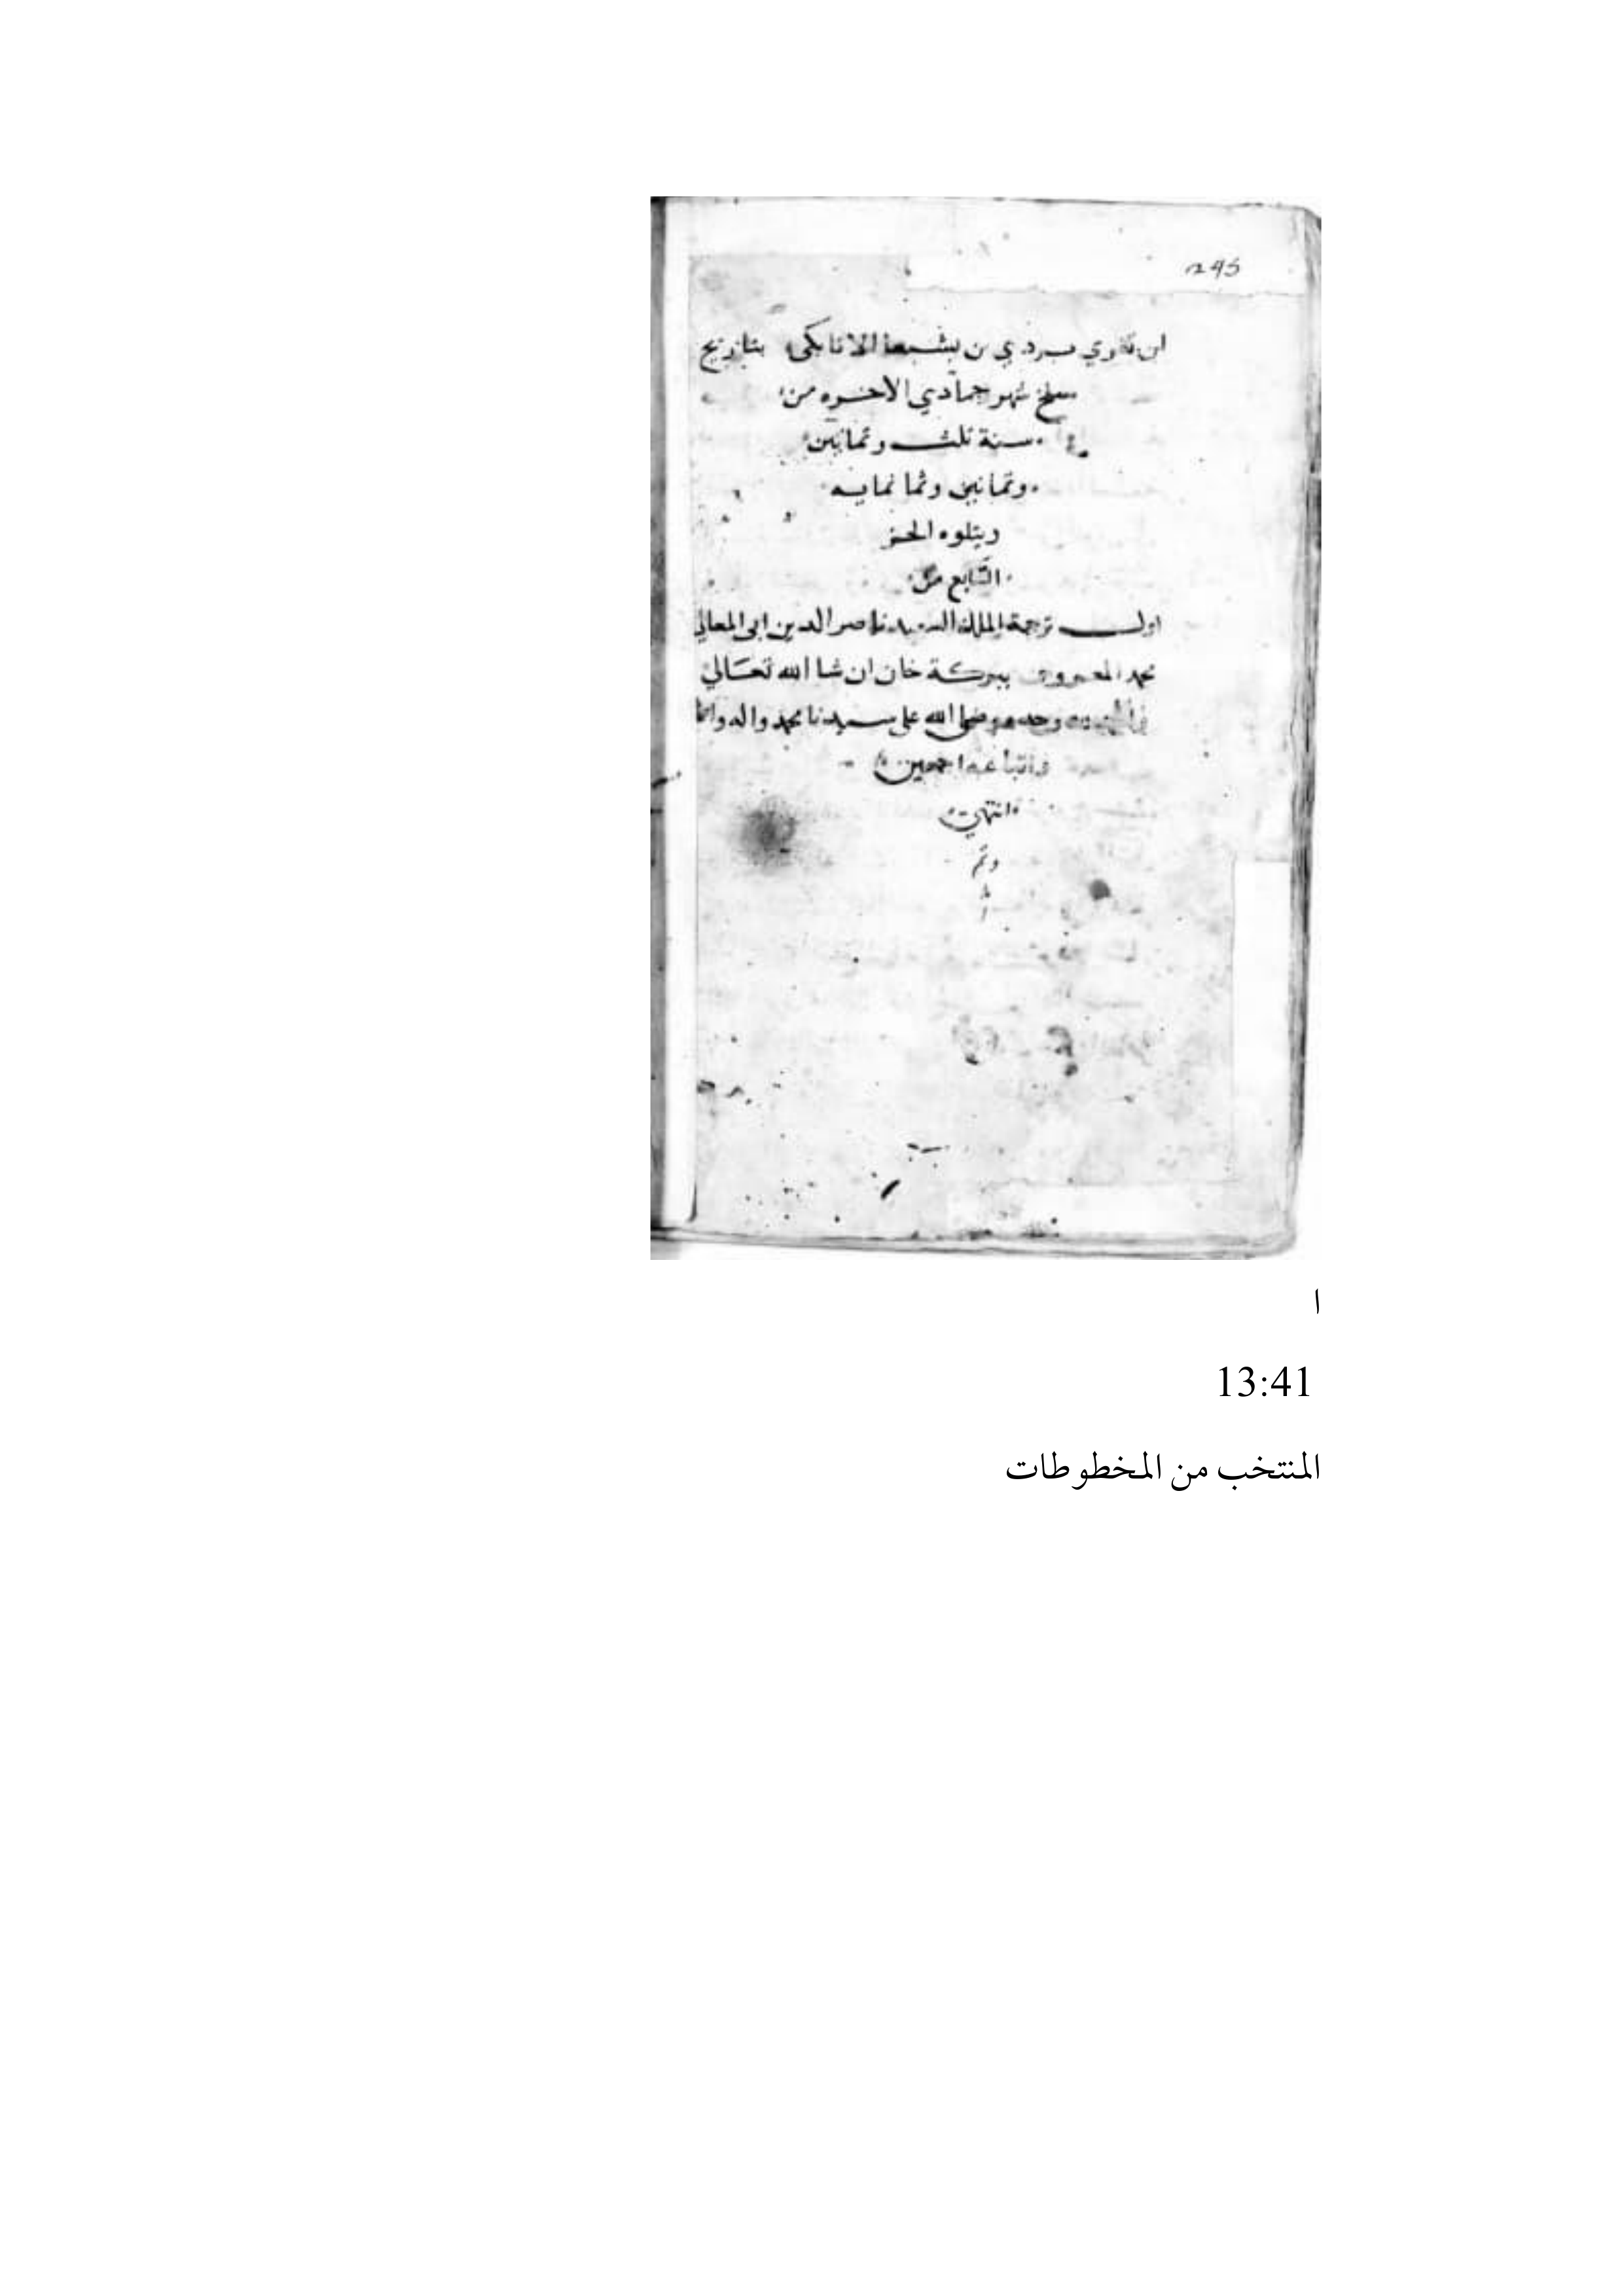 245
ابن تغري بردي بن بشبغا الاتابكي بتاريخ
سلخ شهر جمادي الاخره من
سنة ثلث وثمانين
وثمانين وثمانمايه
ويتلوه الجز
السابع من
اول ترجمة الملك السعيد ناصر الدين ابى المعالي
محمد المعروف ببركة خان ان شا الله تعالي
وحده وصلى الله على سيدنا محمد واله
واتباعه اجمعين
انتهي
وتم
ا
13:41
المنتخب من المخطوطات